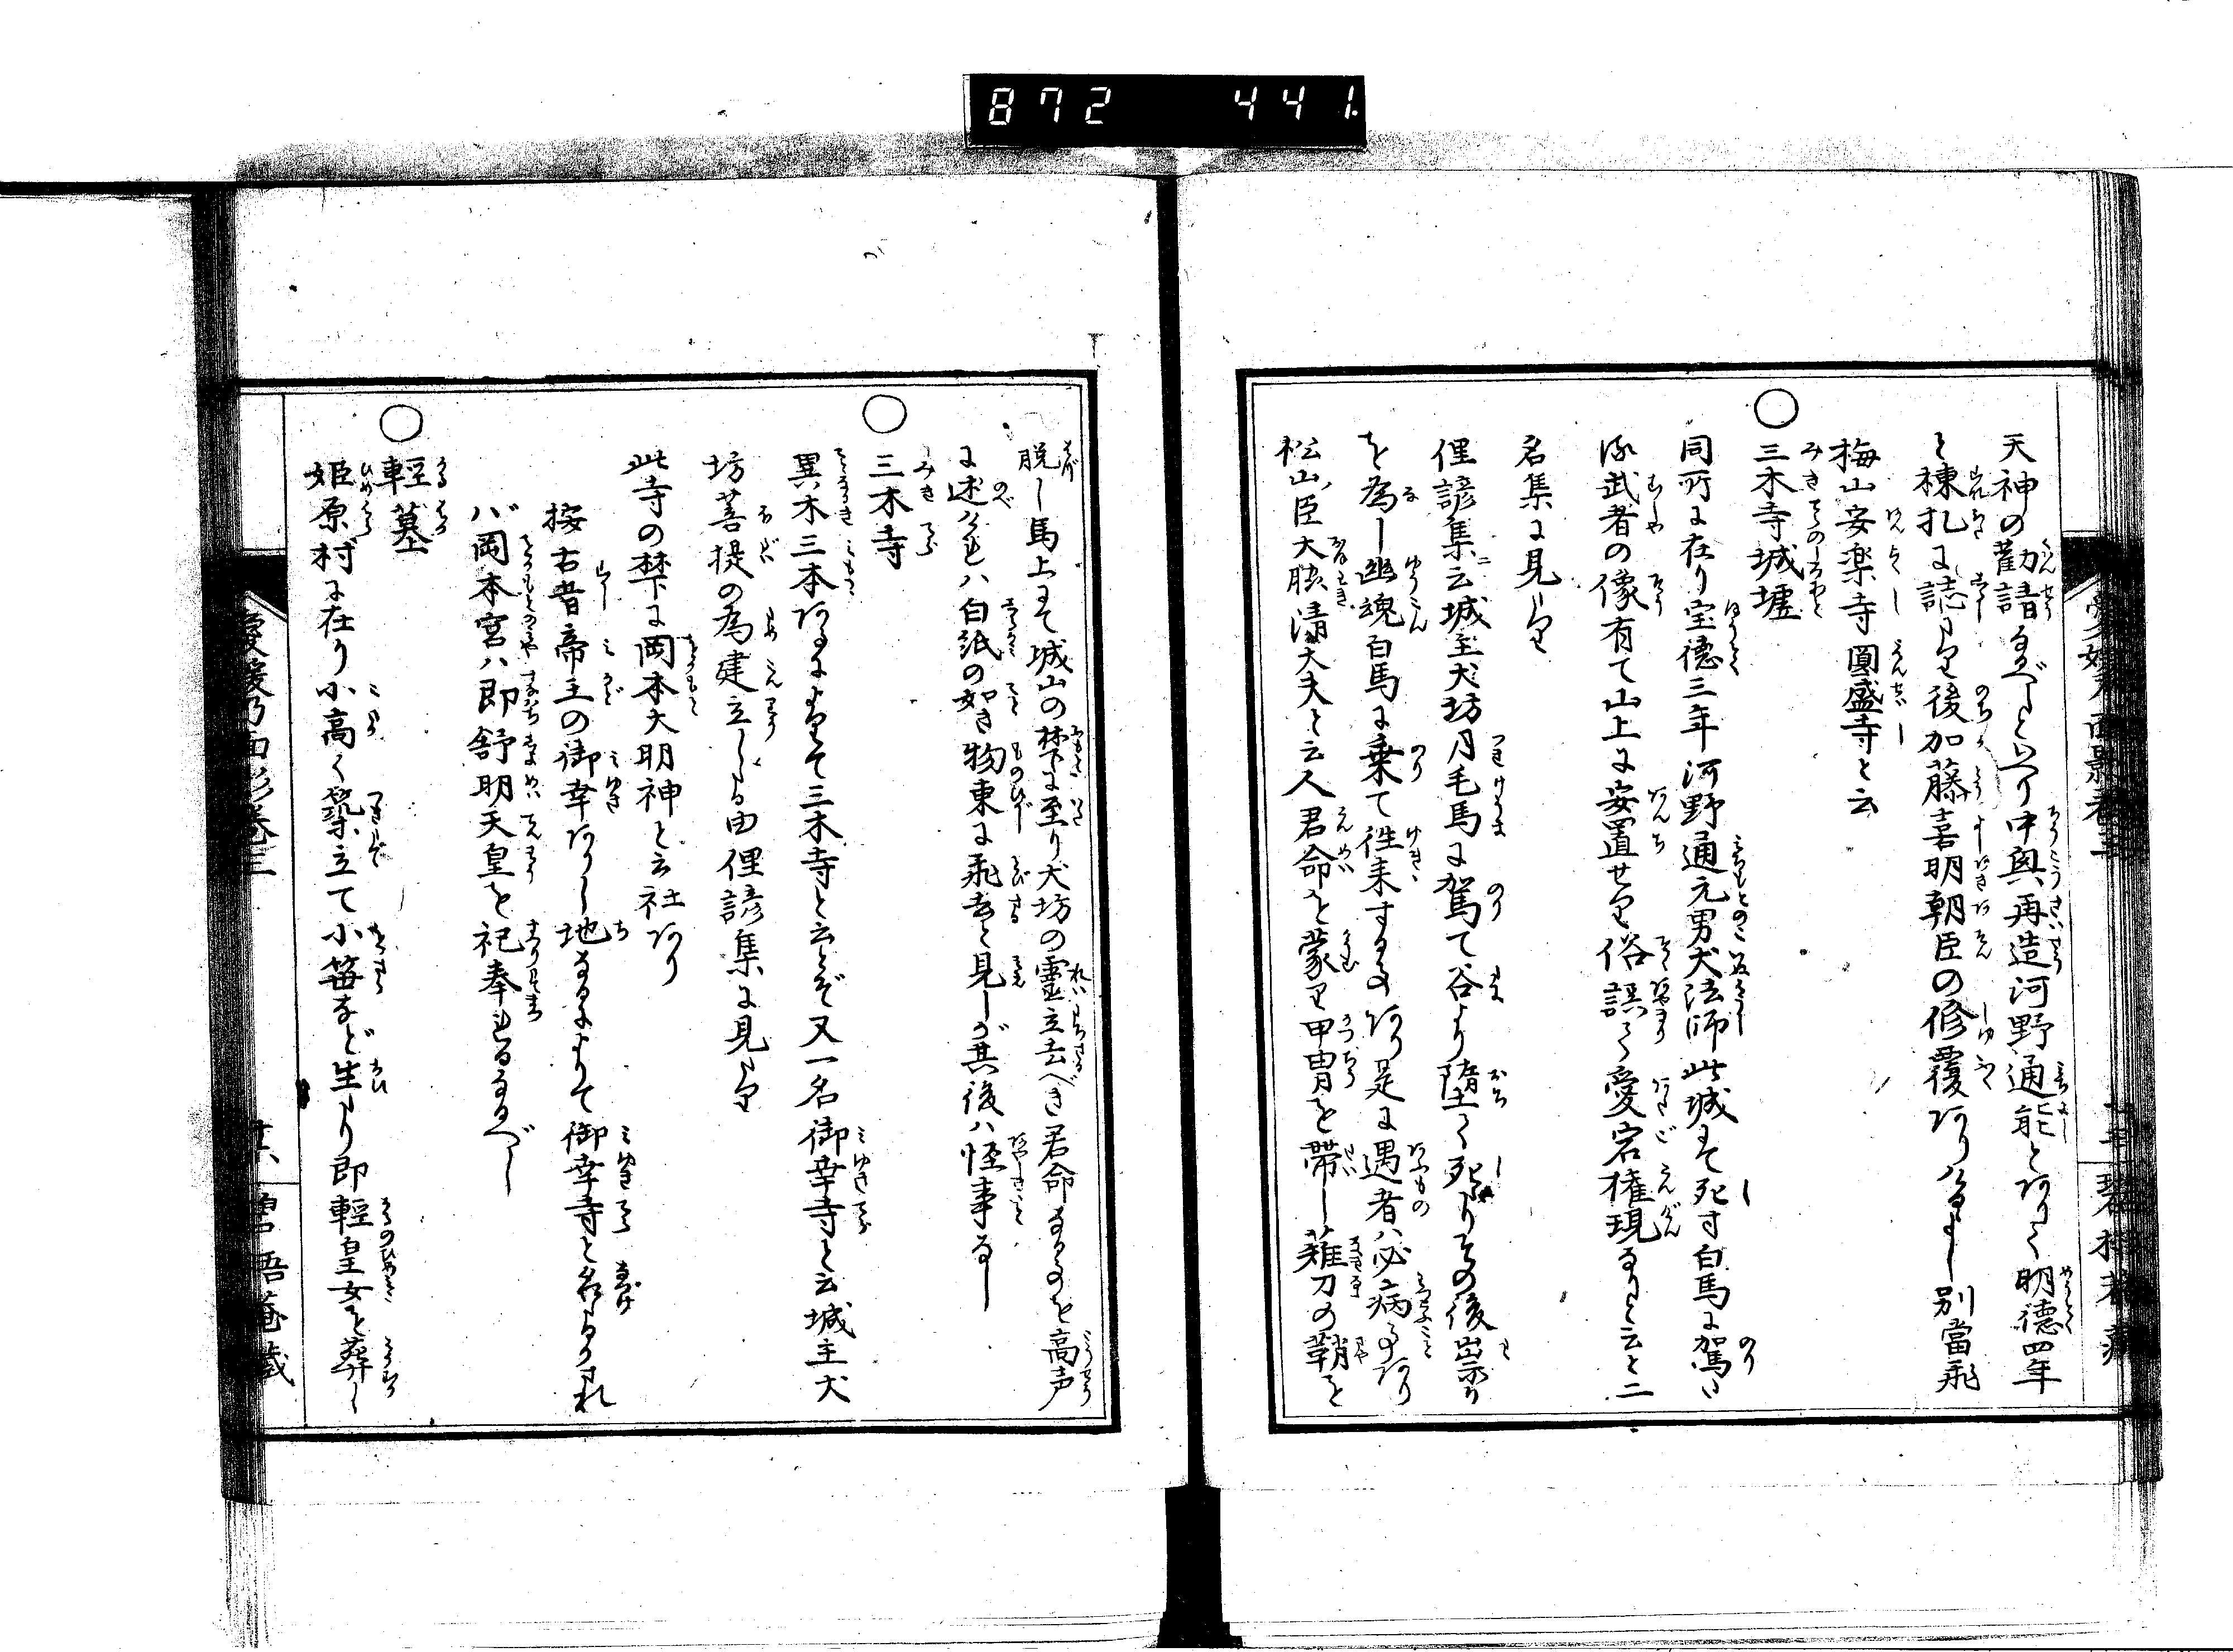 872 441
天神の勧請なるべしと云り中興再造河野通能とありて明徳四年
と棟札に誌せり後加藤嘉明朝臣の修覆ありけるよし別當飛
梅山安楽寺圓盛寺と云
○三木寺城墟
同所に在り宝徳三年河野通元男犬法師此城にて死す白馬に駕たる
武者の像有て山上に安置せり俗誤て愛宕権現なりと云と二
名集に見えたり
俚諺集ニ云城主犬坊月毛馬に駕て谷より墮て死りその後崇り
を為し幽魂白馬に乗て徃来する事あり是に遇者ハ必病る事あり
松山臣大脇清大夫と云人君命を蒙り甲冑を帯し薙刀の鞘を
脱し馬上にて城山の禁に至り犬坊の靈立去べき君命なる事を高声
に述けれハ白紙の如き物東に飛去と見しが其後ハ怪事なし
○三木寺
異木三本あるによりて三木寺と云とぞ又一名御幸寺と云城主犬
坊菩提の為建立したる由俚諺集に見えたり
此寺の禁に岡本大明神と云社あり
按古昔帝王の御幸ありし地なるによりて御幸寺と名けたりされ
バ岡本宮ハ即舒明天皇を祀奉れるなるべし
○輕墓
姫原村に在り小高く築立て小笹など生たり即輕皇女を葬し
愛媛乃面影巻三